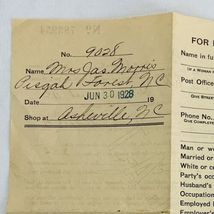 No. 9028
Name Mrs Jas Morris
Pisgah Forest, N.C
JUN 30 1928
Date 19
Shop at Asheville, N.C
FOR
Name in full
(IF A WOMAN
Post Office
GIVE STREET
Phone No.
GIVE COMPLETE
Man or wo
Married or
If married
White or c
Party's occ
Husband's
Occupation
Employed
Employed